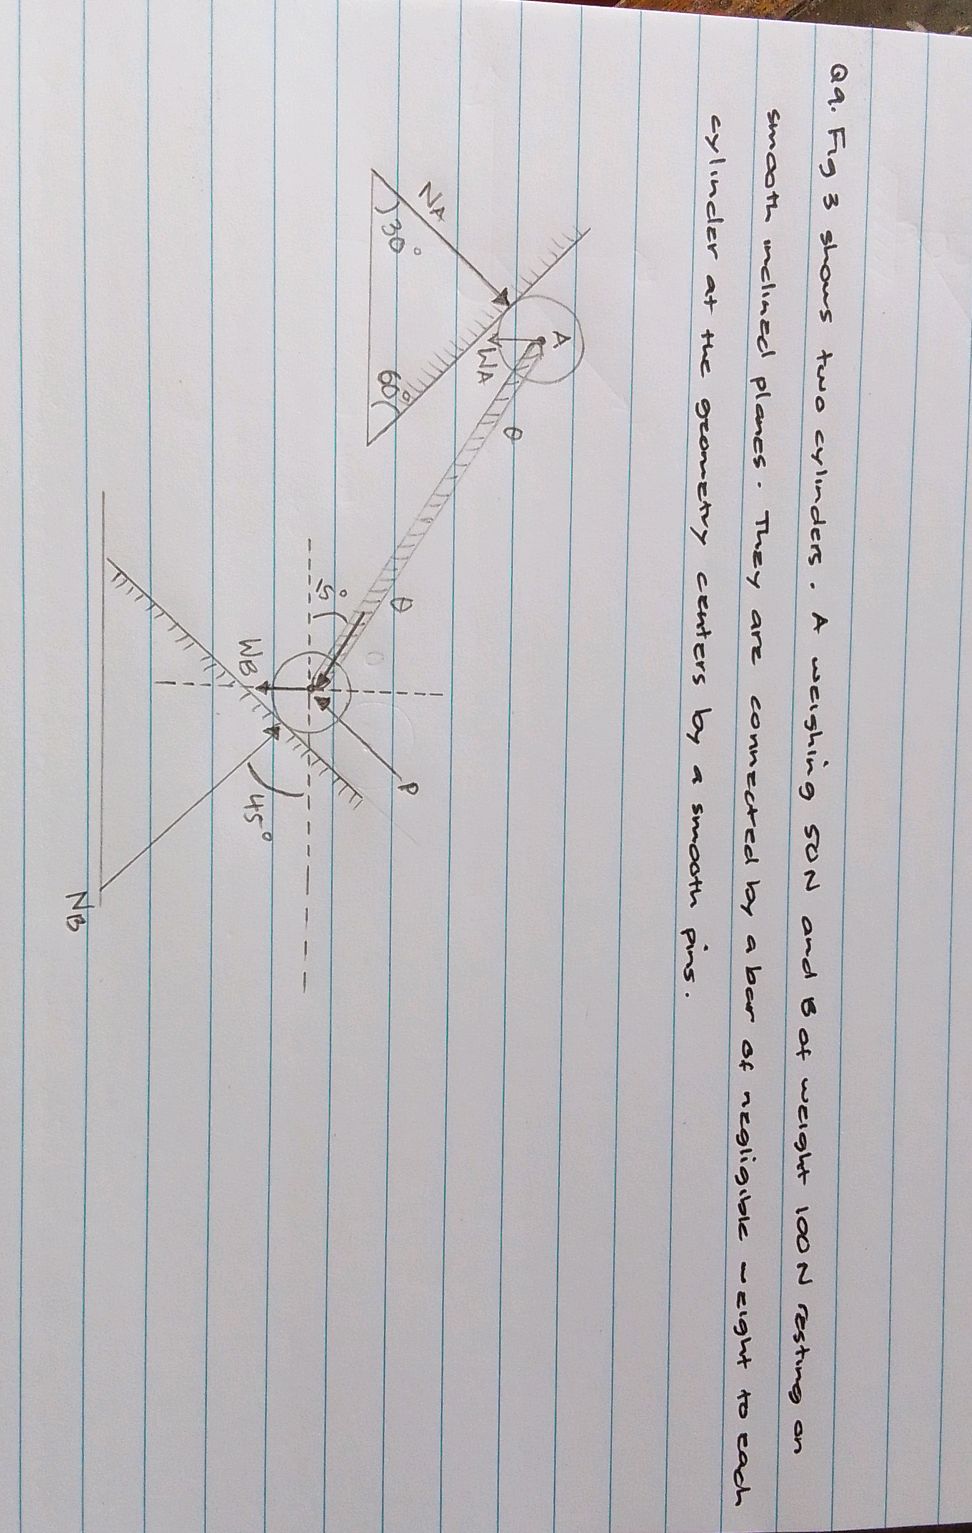 Q9. Fig 3 shows two cylinders. A weighing 50N and B of weight 100N resting on
smooth inclined planes. They are connected by a bar of negligible weight to each
cylinder at the geometry centers by a smooth pins.
A
NA
WA
θ
30°
60°
θ
P
15°
WB
45°
NB